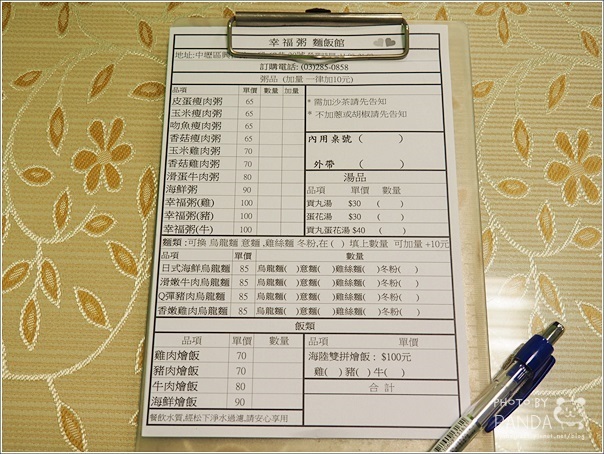 幸福粥 麵飯館
地址:中壢區興
訂購電話: (03)285-0858
粥品 (加量一律加10元)
品項 單價 數量 加量
皮蛋瘦肉粥 65
玉米瘦肉粥 65
吻魚瘦肉粥 65
香菇瘦肉粥 65
玉米雞肉粥 70
香菇雞肉粥 70
滑蛋牛肉粥 80
海鮮粥 90
幸福粥(雞) 100
幸福粥(豬) 100
幸福粥(牛) 100
* 需加沙茶請先告知
* 不加蔥或胡椒請先告知
內用桌號 ( )
外帶 ( )
湯品
品項 單價 數量
貢丸湯 $30 ( )
蛋花湯 $30 ( )
貢丸蛋花湯 $40 ( )
麵類:可換 烏龍麵 意麵 ,雞絲麵 冬粉,在 ( ) 填上數量 可加量 +10元
品項 單價 數量
日式海鮮烏龍麵 85 烏龍麵( )意麵( )雞絲麵( )冬粉( )
滑嫩牛肉烏龍麵 85 烏龍麵( )意麵( )雞絲麵( )冬粉( )
Q彈豬肉烏龍麵 85 烏龍麵( )意麵( )雞絲麵( )冬粉( )
香嫩雞肉烏龍麵 85 烏龍麵( )意麵( )雞絲麵( )冬粉( )
飯類
品項 單價 數量
雞肉燴飯 70
豬肉燴飯 70
牛肉燴飯 80
海鮮燴飯 90
品項 數量
海陸雙拼燴飯 : $100元
雞( ) 豬( ) 牛( )
合 計
餐飲水質,經松下淨水過濾,請安心享用
PHOTO BY
PANDA